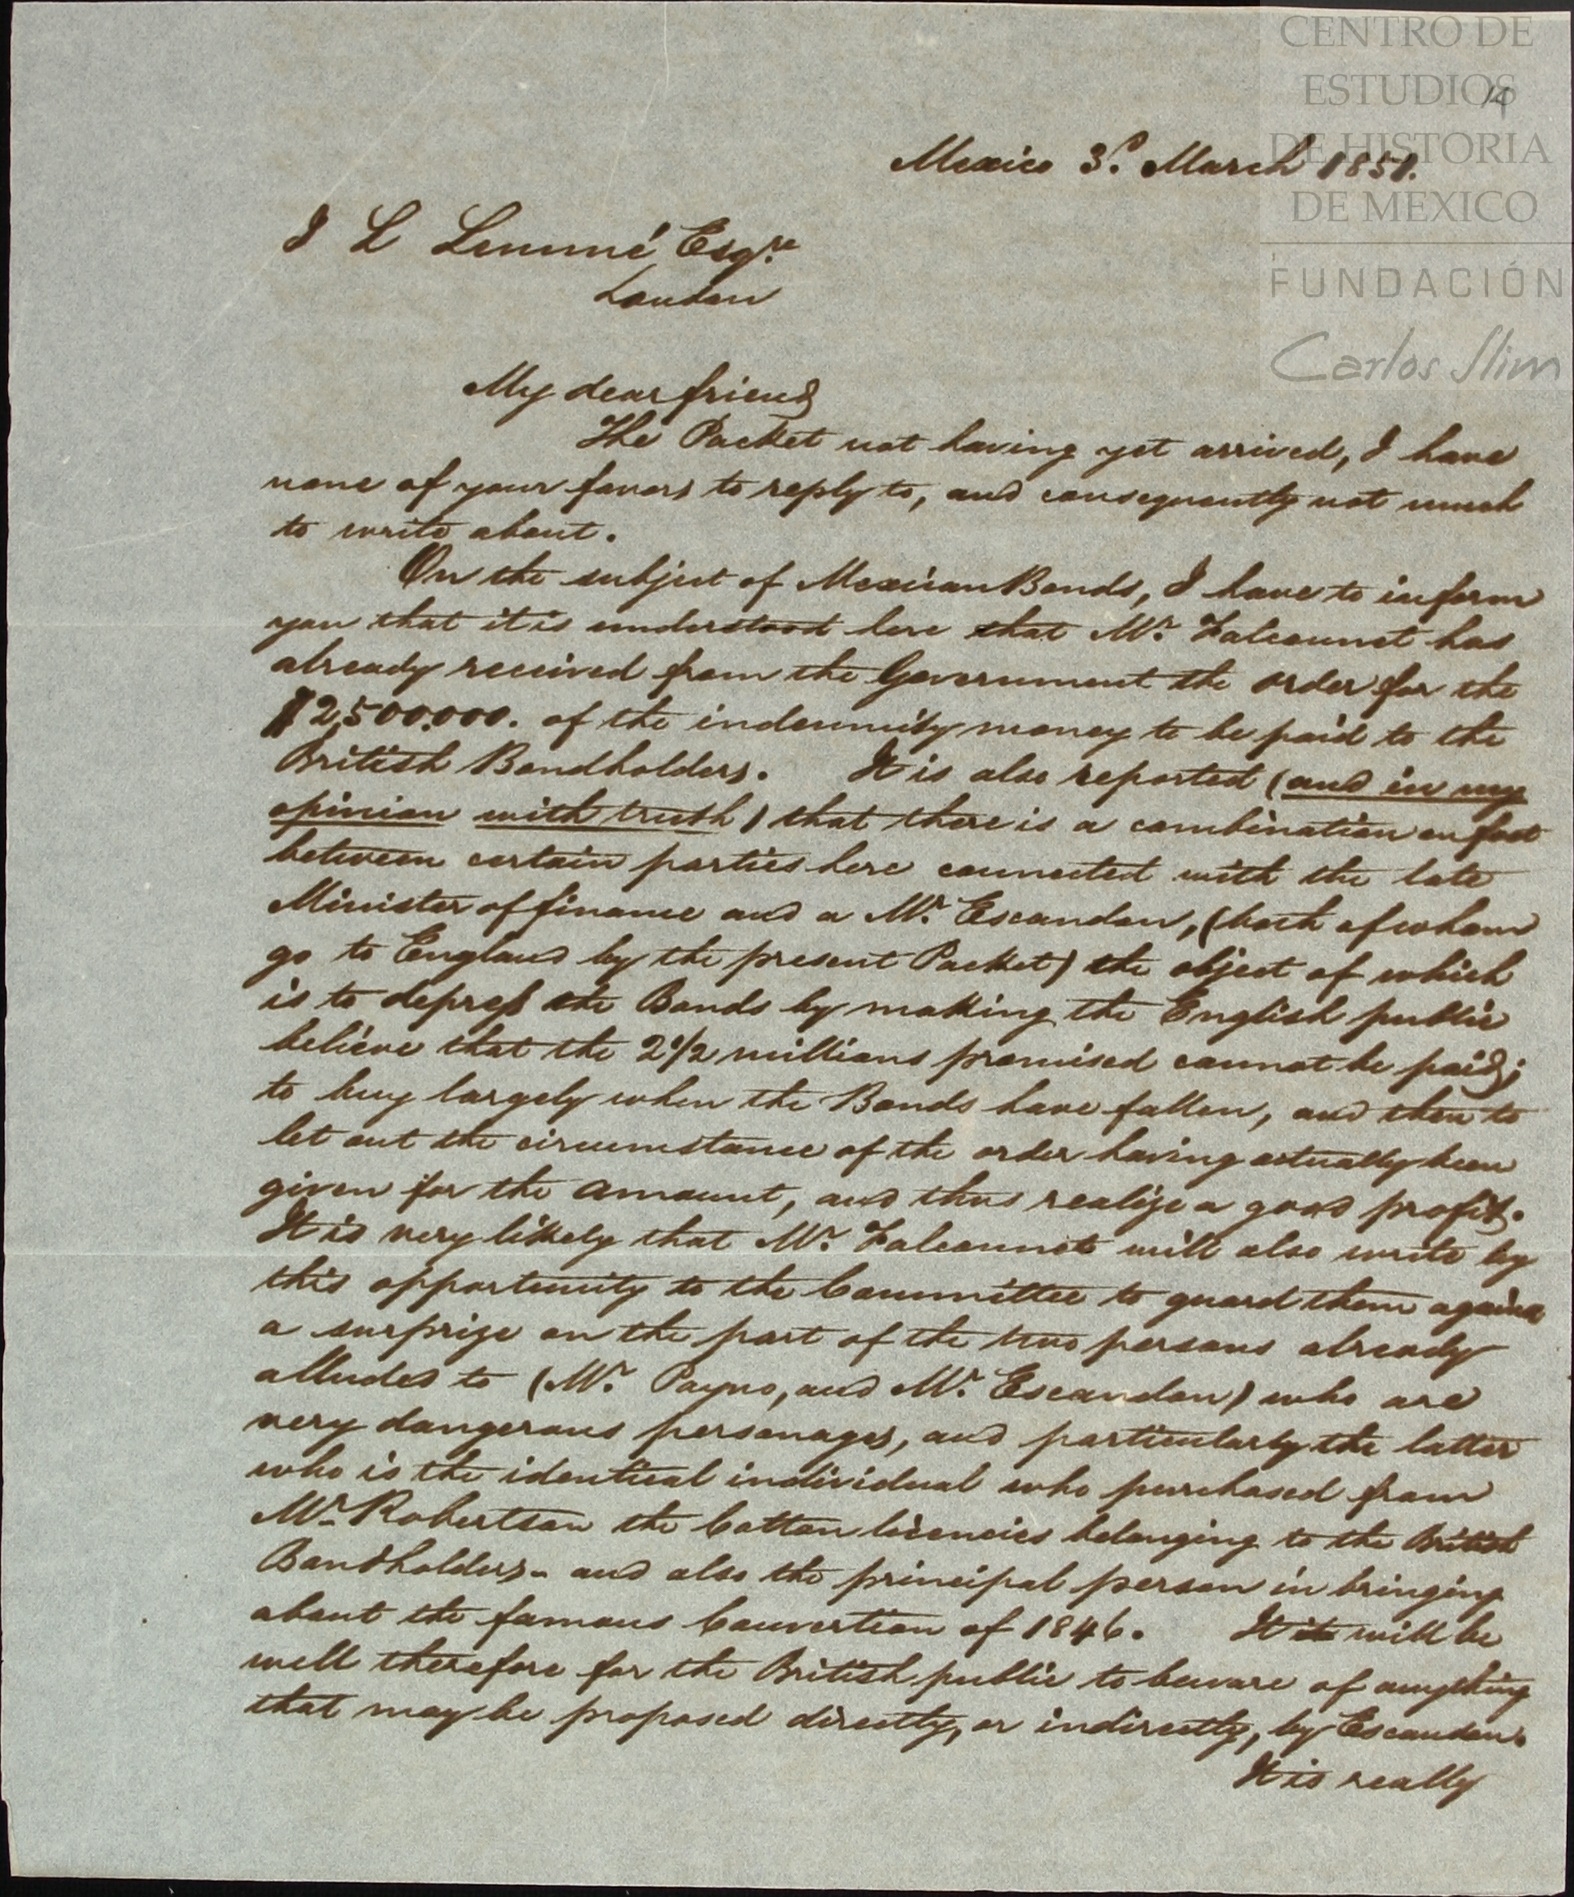 CENTRO DE
ESTUDIOS
DE HISTORIA
DE MEXICO
FUNDACIÓN
Carlos Slim
14
Mexico 3d. March 1851.
J L Lemmé Esqre.
London
My dear friend
The Packet not having yet arrived, I have
none of your favors to reply to, and consequently not much
to write about.
On the subject of Mexican Bonds, I have to inform
you that it is understood here that Mr. Falconnet has
already received from the Government the order for the
$2,500,000. of the indemnity money to be paid to the
British Bondholders. It is also reported (and in my
opinion with truth) that there is a combination on foot
between certain parties here connected with the late
Minister of finance and a Mr. Escandon, (both of whom
go to England by the present Packet) the object of which
is to depress the Bonds by making the English public
believe that the 2 1/2 millions promised cannot be paid;
to buy largely when the Bonds have fallen, and then to
let out the circumstance of the order having actually been
given for the amount, and thus realize a good profit.
It is very likely that Mr. Falconnet will also write by
this opportunity to the Committee to guard them against
a surprize on the part of the two persons already
alluded to (Mr. Payno, and Mr. Escandon) who are
very dangerous personages, and particularly the latter
who is the identical individual who purchased from
Mr. Robertson the Cotton licencies belonging to the British
Bondholders- and also the principal person in bringing
about the famous Convertion of 1846. It is will be
well therefore for the British public to beware of anything
that may be proposed directly, or indirectly, by Escandon.
It is really